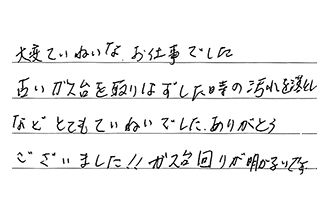 大変ていねいな、お仕事でした
古いガス台を取りはずした時の汚れを落とし
など とてもていねいでした。ありがとう
ございました!! ガス台回りが明かるいです